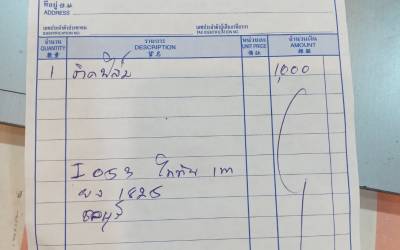 ที่อยู่
ADDRESS
เลขประจำตัวประชาชน
IDENTIFICATION NO.
เลขประจำตัวผู้เสียภาษีอากร
TAX IDENTIFICATION NO.
จำนวน
QUANTITY
數量
รายการ
DESCRIPTION
貨名
หน่วยละ
UNIT PRICE
價銀
จำนวนเงิน
AMOUNT
銀額
1 ติดฟิล์ม 1,000
1826
ชลบุรี